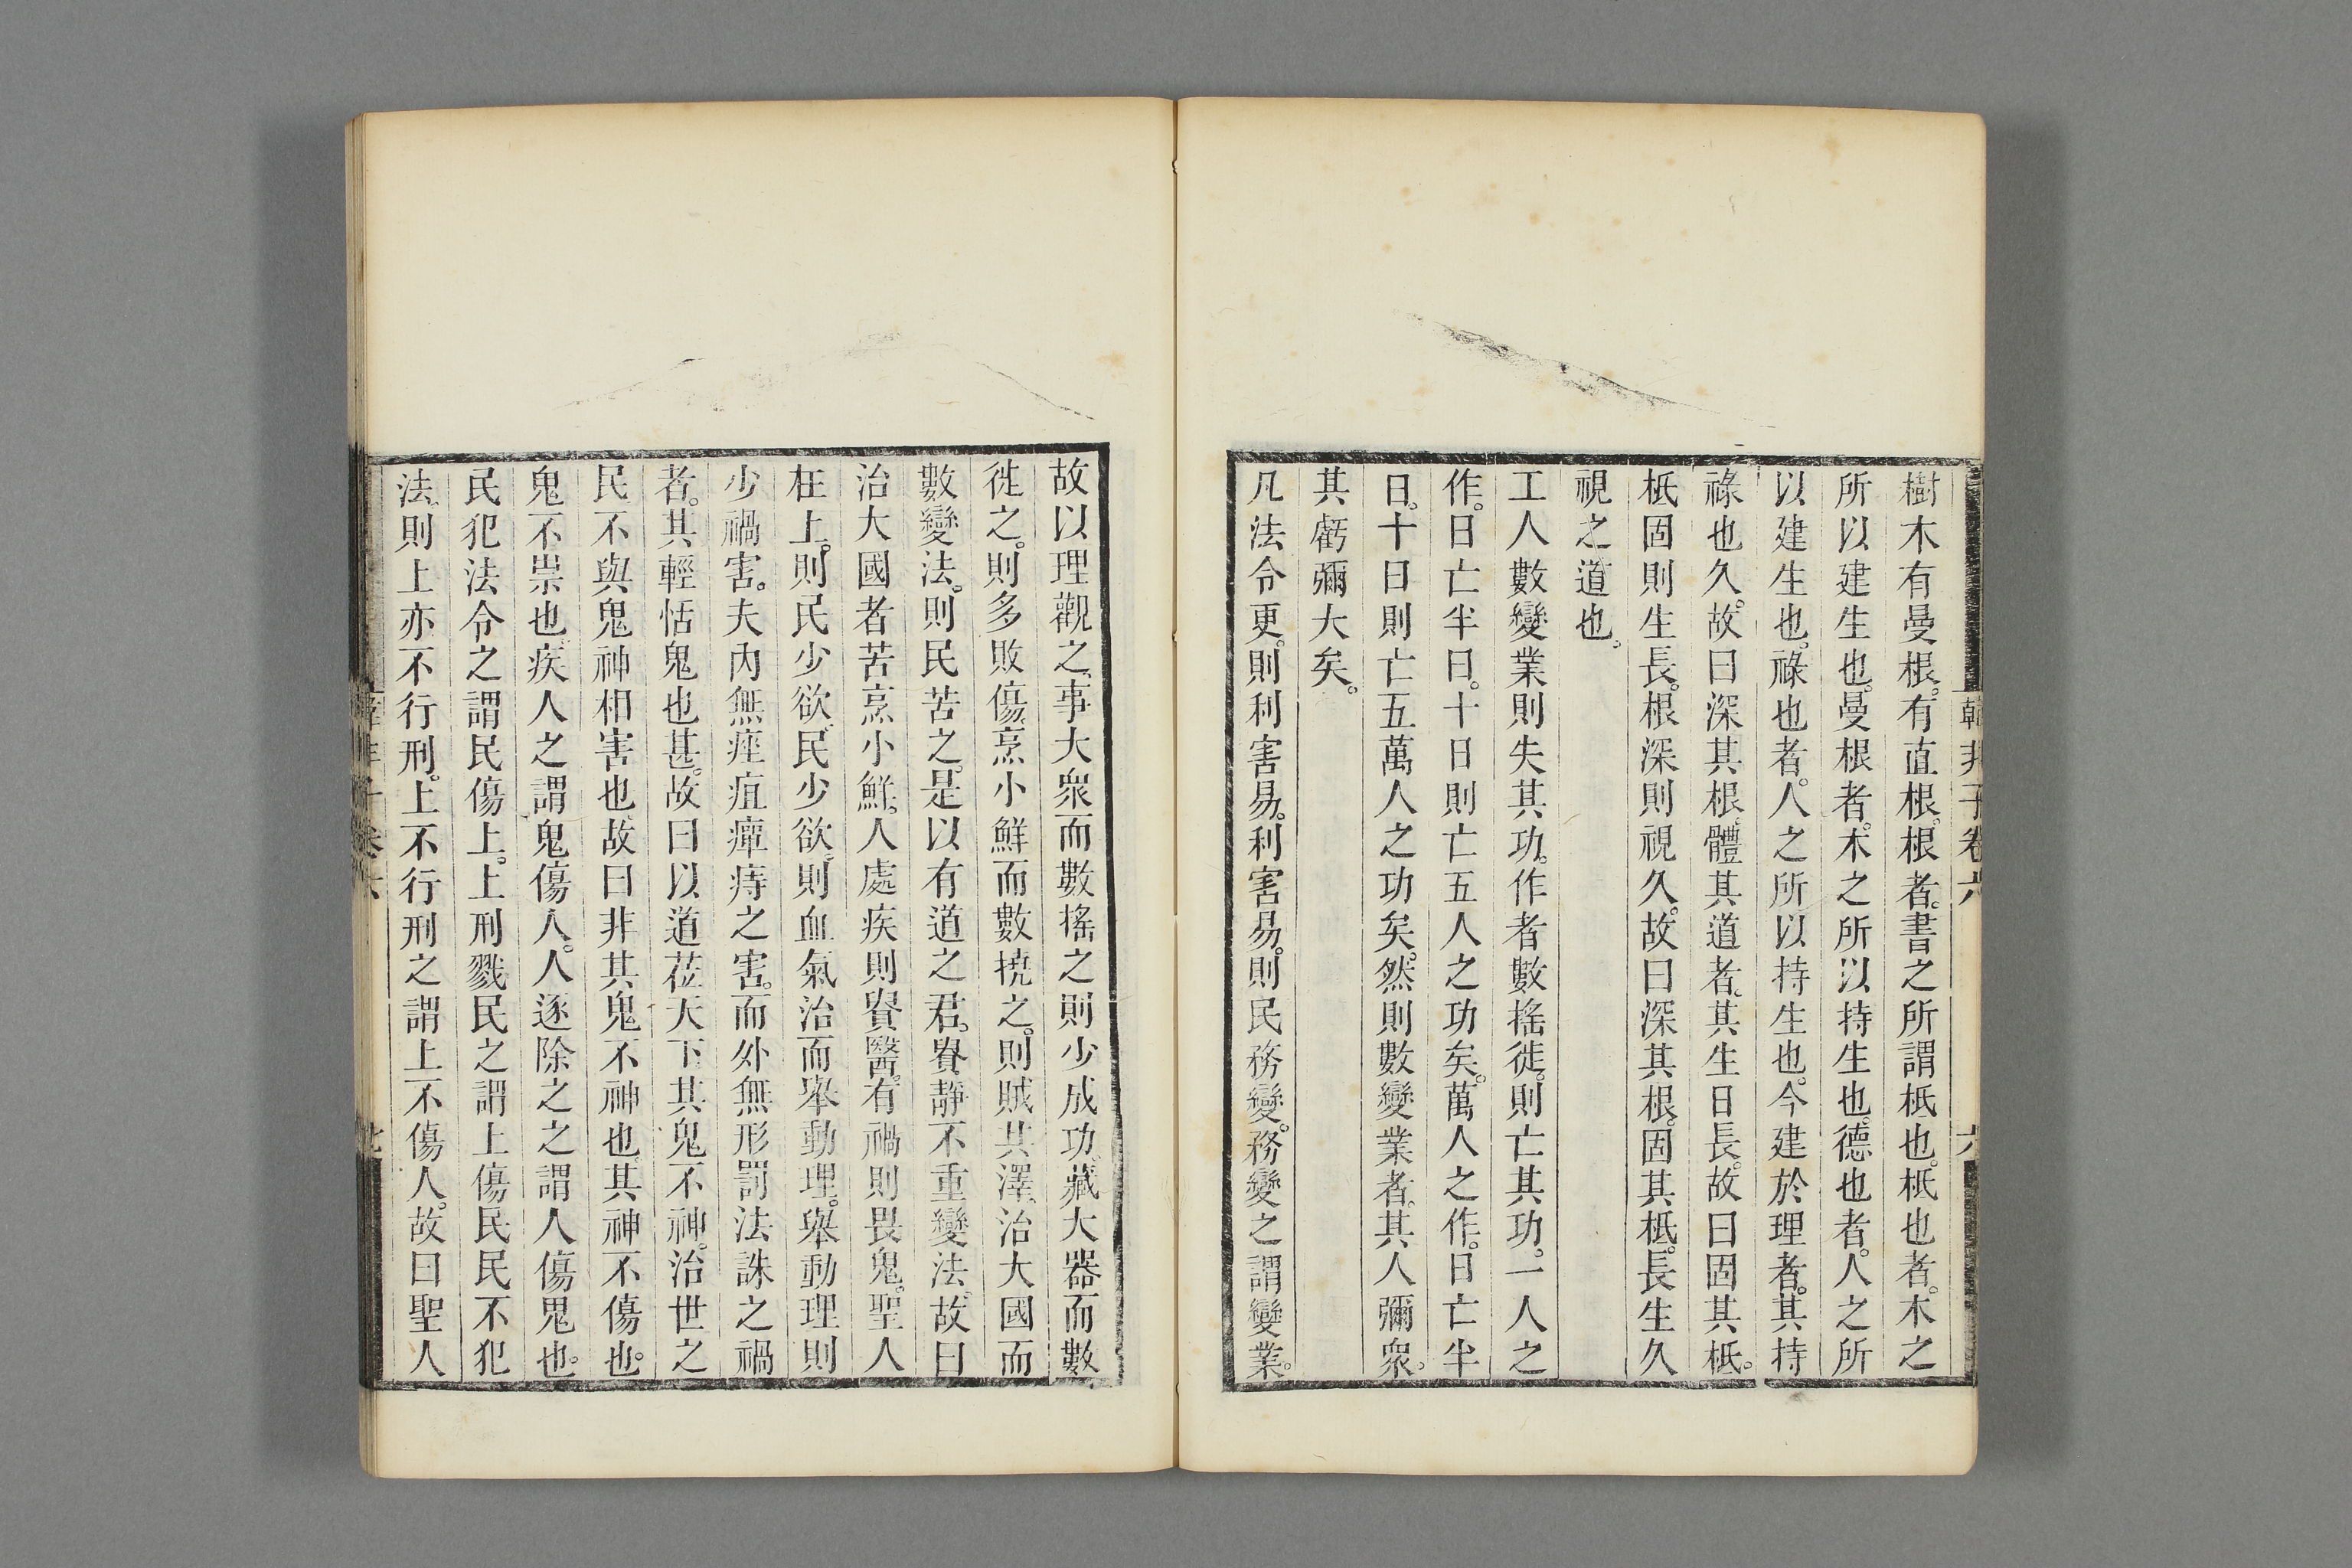 韓非子卷六
六
樹木有曼根。有直根。根者。書之所謂柢也。柢也者。木之
所以建生也。曼根者。木之所以持生也。德也者。人之所
以建生也。祿也者。人之所以持生也。今建於理者。其持
祿也久。故曰深其根。體其道者。其生日長。故曰固其柢。
柢固則生長。根深則視久。故曰深其根。固其柢。長生久
視之道也。
工人數變業則失其功。作者數搖徙。則亡其功。一人之
作。日亡半日。十日則亡五人之功矣。萬人之作。日亡半
日。十日則亡五萬人之功矣。然則數變業者。其人彌衆。
其虧彌大矣。
凡法令更。則利害易。利害易。則民務變。務變之謂變業。
故以理觀之。事大衆而數搖之則少成功。藏大器而數
徙之。則多敗傷。烹小鮮而數撓之。則賊其澤。治大國而
數變法。則民苦之。是以有道之君。貴靜不重變法。故曰
治大國者若烹小鮮。人處疾則貴醫。有禍則畏鬼。聖人
在上。則民少欲。民少欲。則血氣治而舉動理。舉動理則
少禍害。夫內無痤疽癉痔之害。而外無形罰法誅之禍
者。其輕恬鬼也甚。故曰以道莅天下其鬼不神。治世之
民不與鬼神相害也。故曰非其鬼不神也。其神不傷也。
鬼不祟也。疾人之謂鬼傷人。人逐除之之謂人傷鬼也。
民犯法令之謂民傷上。上刑戮民之謂上傷民民不犯
法。則上亦不行刑。上不行刑之謂上不傷人。故曰聖人